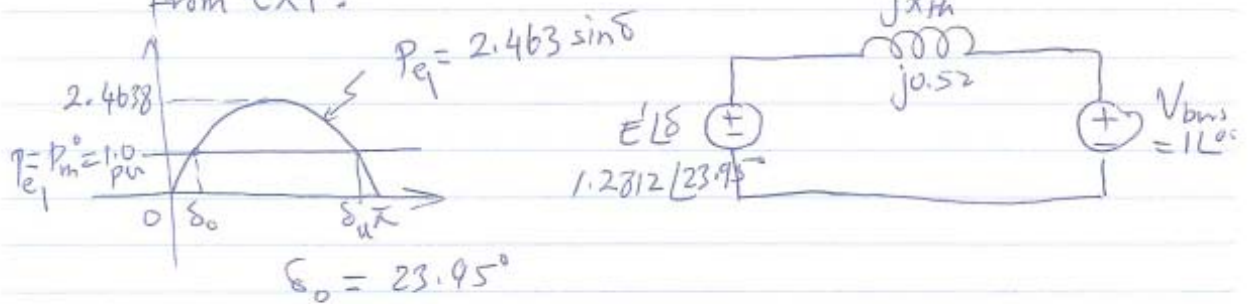 From EX1:
P_e1 = 2.463 sinδ
2.4638
P_e1 = P_m° = 1.0 pu
0 δ₀ δ_u π
δ₀ = 23.95°
jX_th
j0.52
E'∠δ
1.2812∠23.95°
V_bus
= 1∠0°